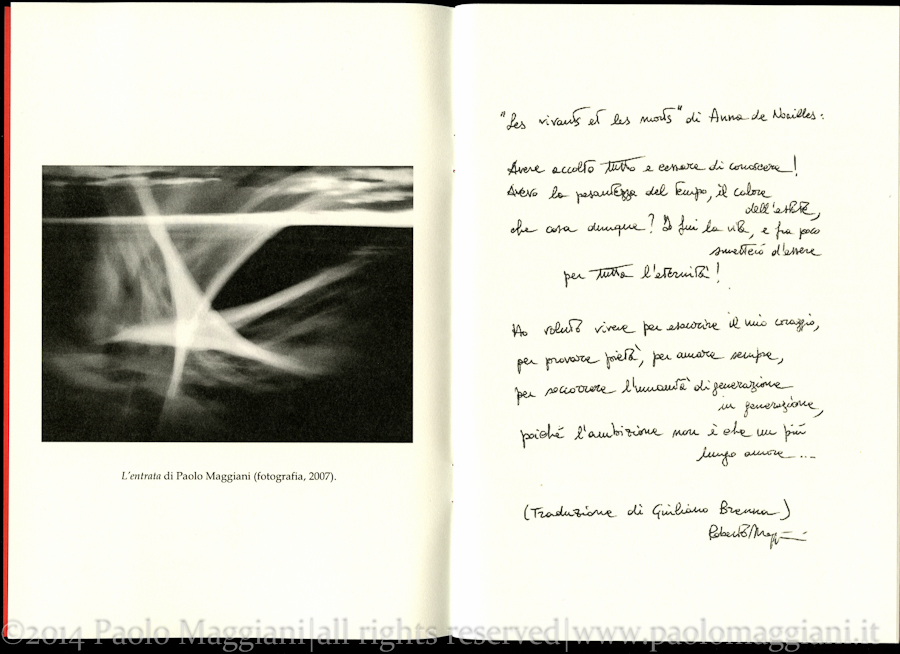 L'entrata di Paolo Maggiani (fotografia, 2007).
"Les vivants et les morts" di Anna de Noailles:
Avere accolto tutto e cessare di conoscere!
Avevo la pesantezza del tempo, il calore
dell'estate,
che cosa dunque? Io fui la vita, e fra poco
smetterò d'essere
per tutta l'eternità!
Ho voluto vivere per esaurire il mio coraggio,
per provare pietà, per amare sempre,
per soccorrere l'umanità di generazione
in generazione,
poiché l'ambizione non è che un più
lungo amore...
(Traduzione di Giuliano Brenna)
Roberto Maggiani
©2014 Paolo Maggiani|all rights reserved|www.paolomaggiani.it